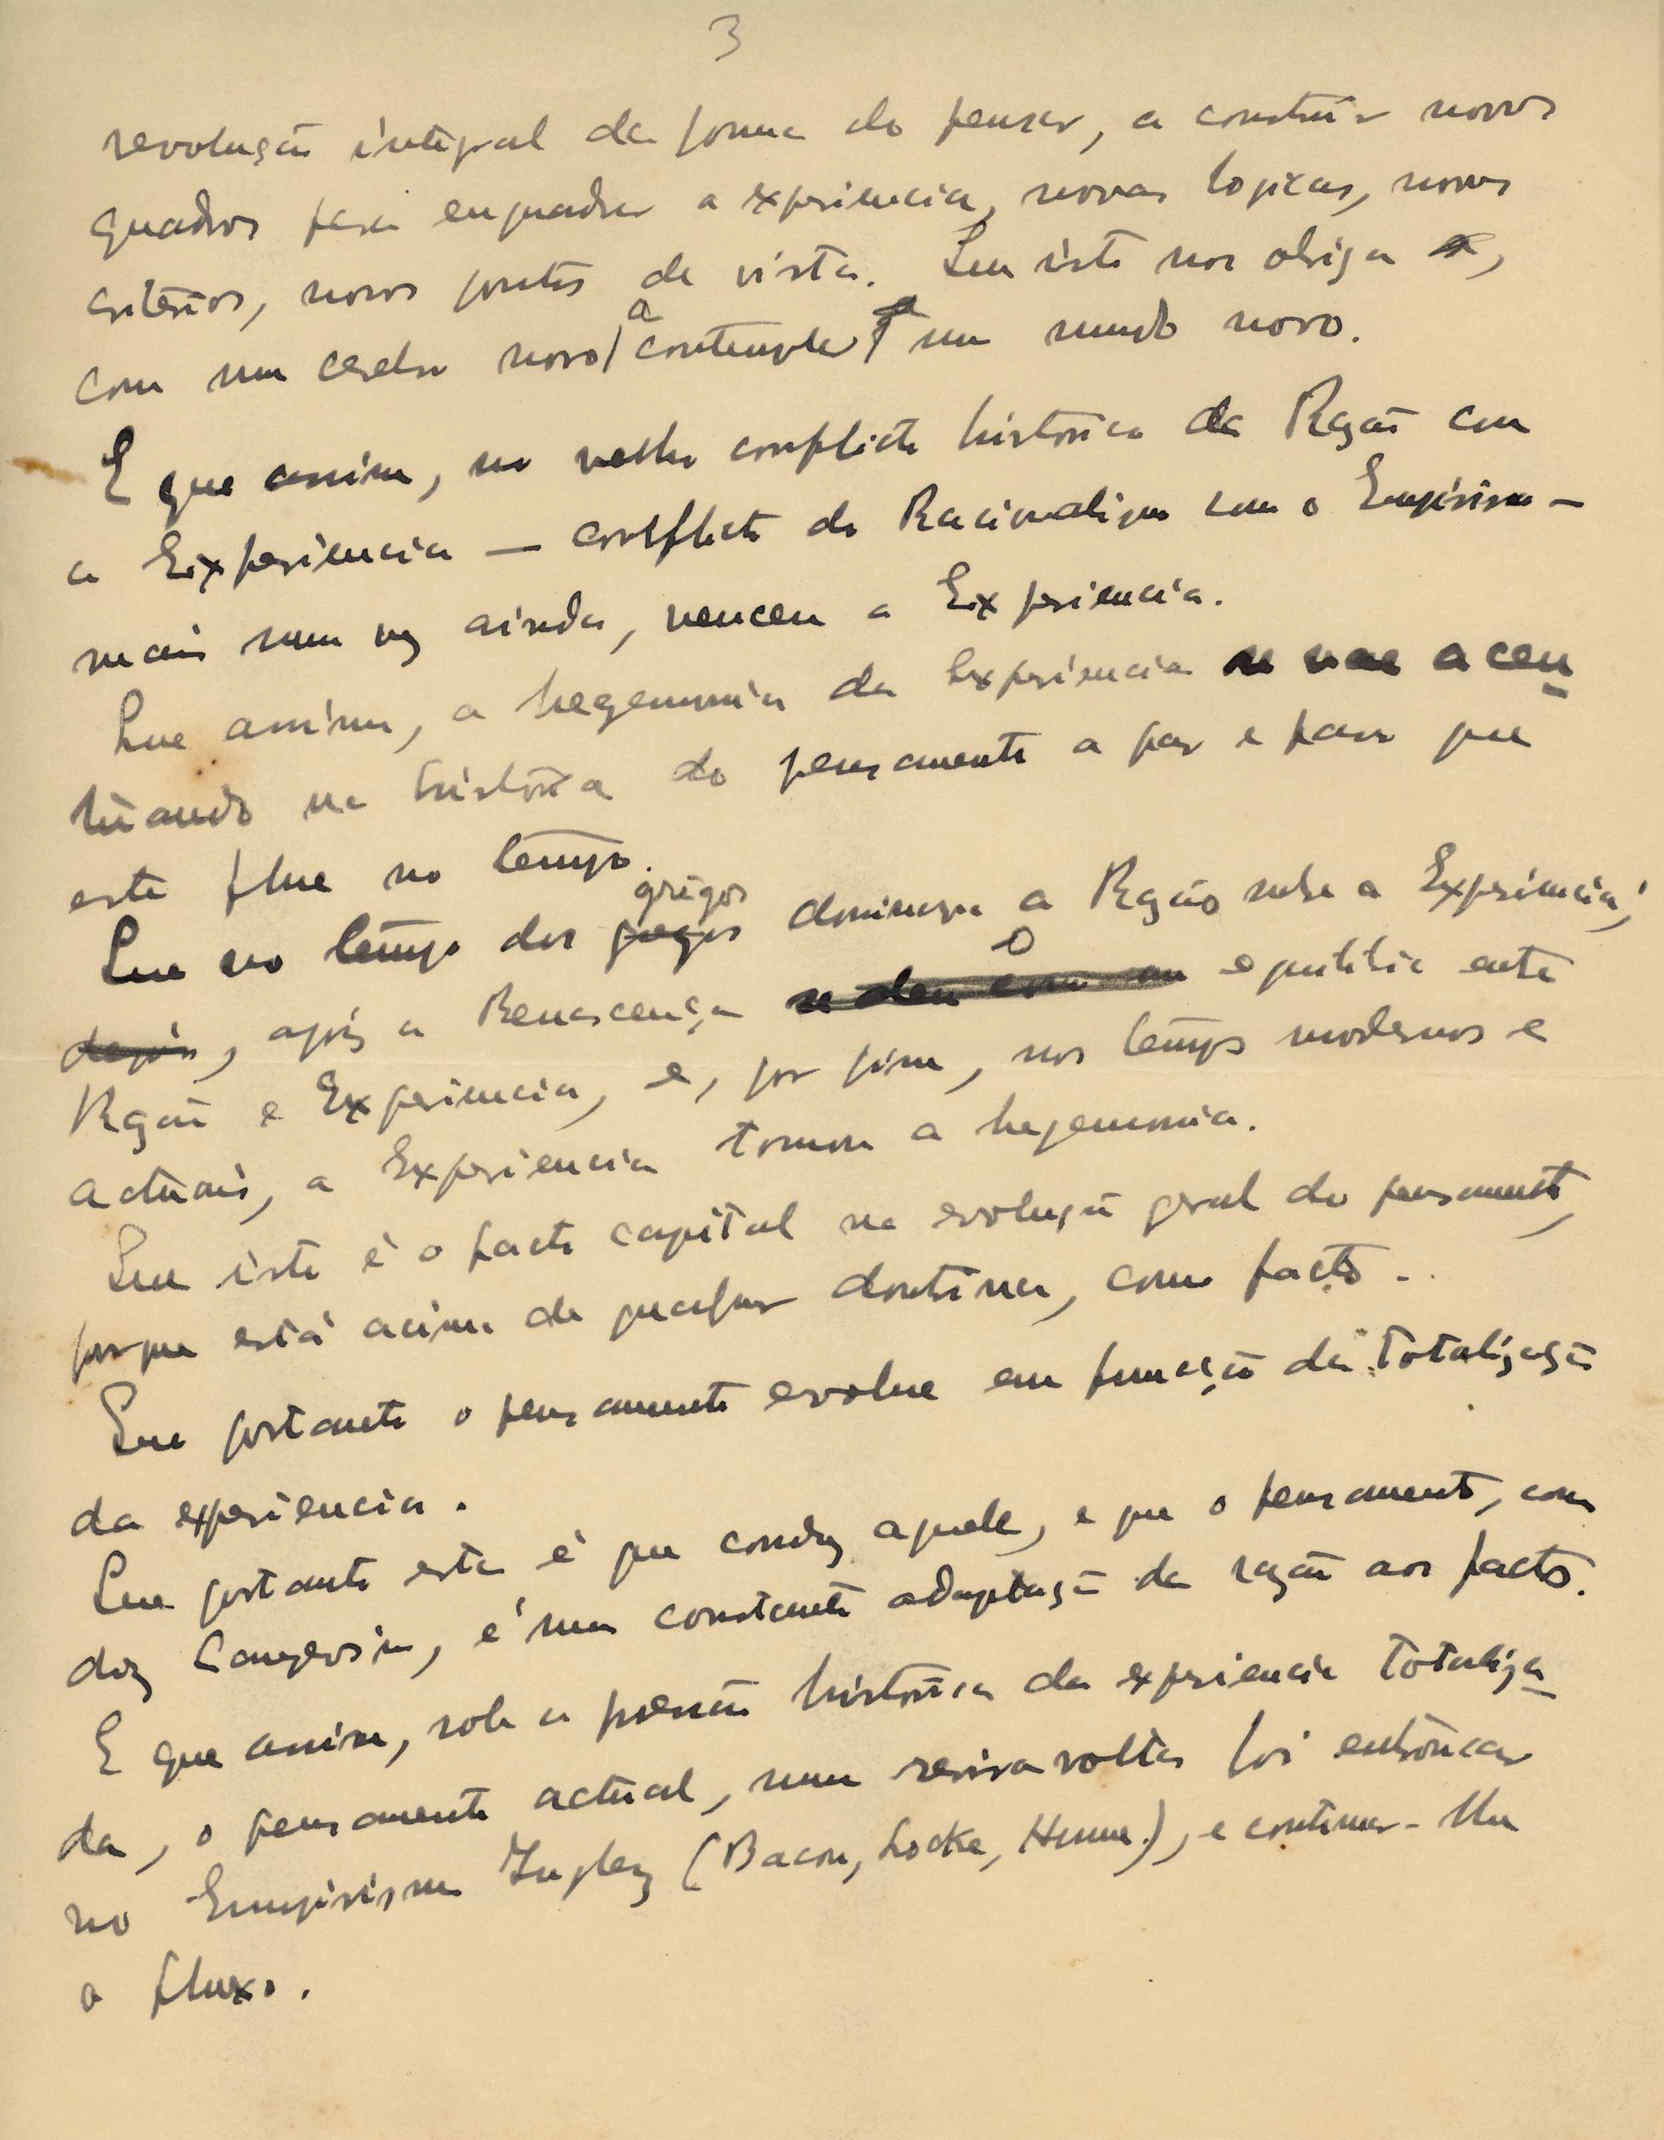 3
revolução integral da forma do pensar, a construir novos
quadros para enquadrar a experiencia, novas logicas, novos
criterios, novos pontos de vista. Que isto nos obriga a,
com um cerebro novo, a contemplar um mundo novo.
E que assim, no velho conflicto historico da Razão com
a Experiencia — conflicto do Racionalismo com o Empirismo —
mais uma vez ainda, venceu a Experiencia.
Que assim, a hegemonia da Experiencia se vae acen
tuando na historia do pensamento a par e passo que
este flue no tempo.
Que no tempo dos gregos dominava a Razão sobre a Experiencia;
depois, após a Renascença se deu com um o equilibrio entre
Razão e Experiencia, e, por fim, nos tempos modernos e
actuais, a Experiencia tomou a hegemonia.
Que isto é o facto capital na evolução geral do pensamento,
porque está acima de qualquer doutrina, como facto.
Que portanto o pensamento evolue em função da totalização
da experiencia.
Que portanto esta é que conduz aquele, e que o pensamento, como
diz Langevin, é uma constante adaptação da razão aos factos.
E que assim, sob a pressão historica da experiencia totaliza
da, o pensamento actual, numa reviravolta foi entroncar
no Empirismo Inglez (Bacon, Locke, Hume), e continuar-lhe
o fluxo.